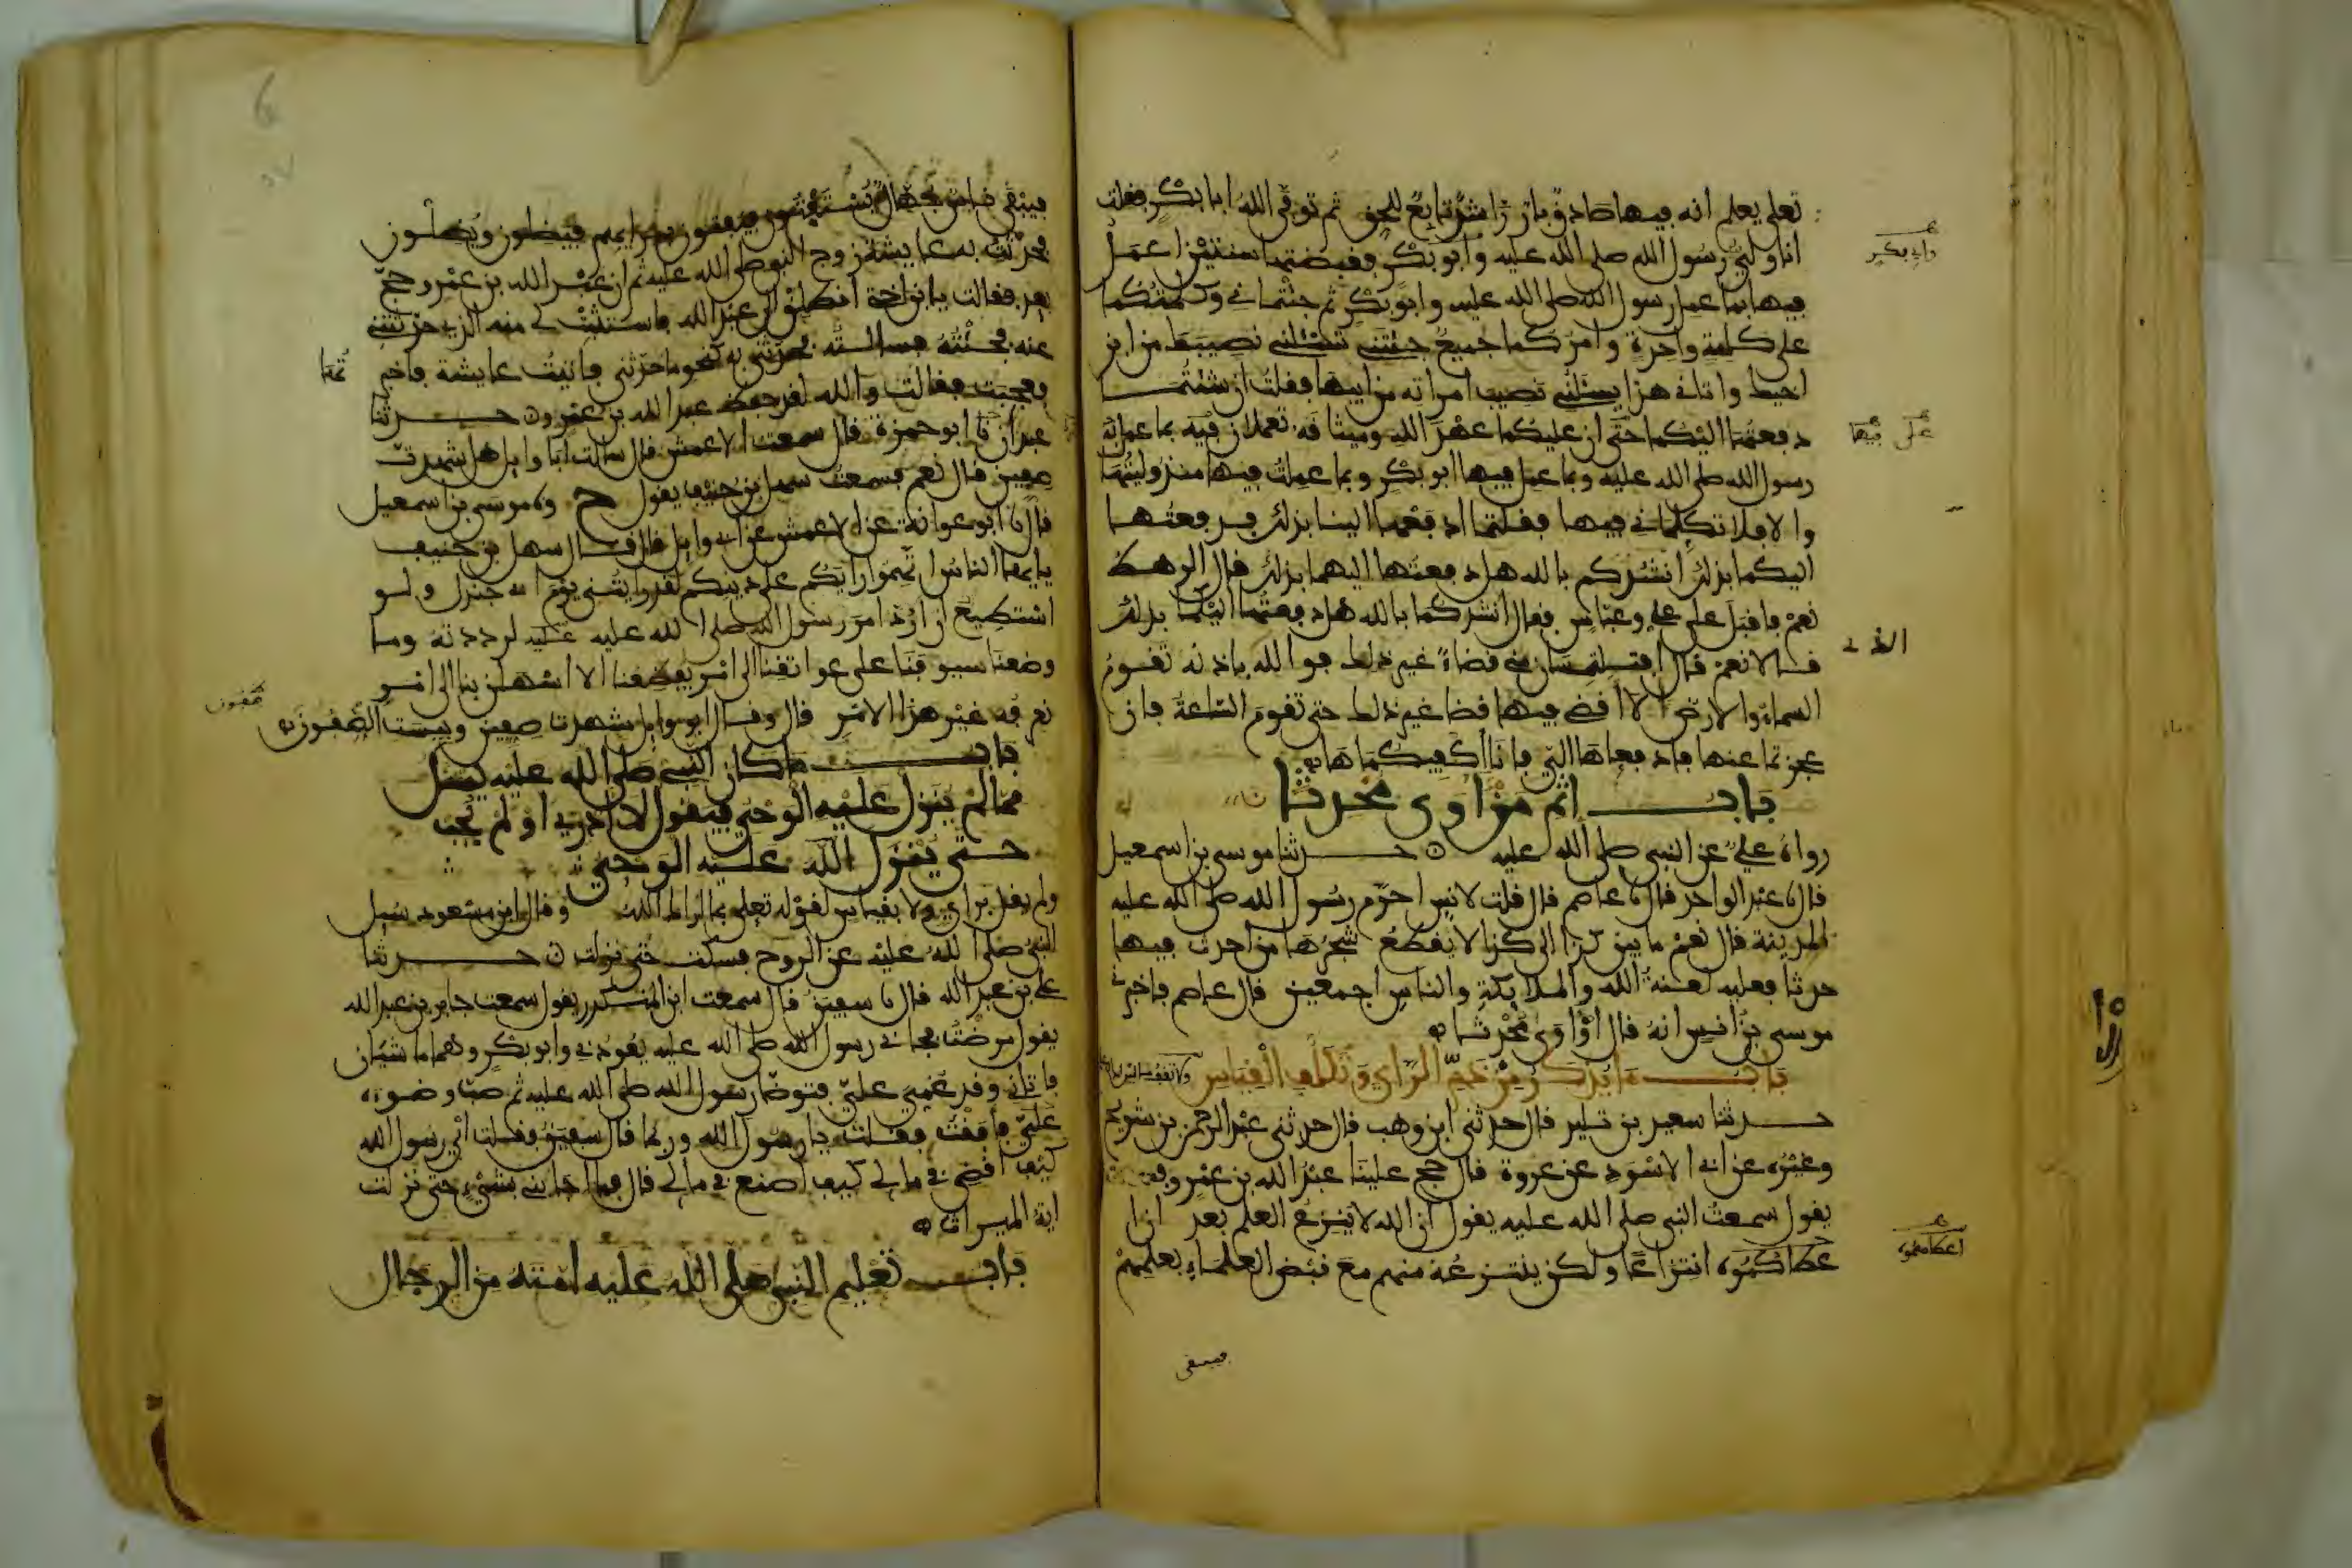 تعلى يعلم انه فيها صادق بار راشد تابع للحق ثم توفى الله ابا بكر فقلت
انا ولي رسول الله صلى الله عليه وابو بكر فقبضتها سنتين اعمل
وابي بكر
فيها بما عمل رسول الله صلى الله عليه وابو بكر ثم جئتماني وكلمتكما
على كلمة واحدة وامركما جميع جئتني تسئلني نصيبك من ابن
اخيك واتاني هذا يسئلني نصيب امراته من ابيها فقلت ان شئتما
دفعتها اليكما على ان عليكما عهد الله وميثاقه تعملان فيه بما عمل به
رسول الله صلى الله عليه وبما عمل فيها ابو بكر وبما عملت فيها منذ وليتها
والا فلا تكلماني فيها فقلتما ادفعها الينا بذلك فدفعتها
اليكما بذلك انشدكم بالله هل دفعتها اليهما بذلك قال الرهط
نعم فاقبل على علي وعباس فقال انشدكما بالله هل دفعتها اليكما بذلك
قالا نعم قال افتلتمسان مني قضاء غير ذلك فوالله باذنه تقوم
السماء والارض لا اقضي فيها قضا غير ذلك حتى تقوم الساعة فان
عجزتما عنها فادفعاها الي فانا اكفيكماها
باب اثم من اوى محدثا
رواه علي عن النبي صلى الله عليه حدثنا موسى بن اسمعيل
قال نا عبد الواحد قال نا عاصم قال قلت لانس احرم رسول الله صلى الله عليه
المدينة قال نعم ما بين كذا الى كذا لا يقطع شجرها من احدث فيها
حدثا فعليه لعنة الله والملايكة والناس اجمعين قال عاصم فاخبرني
موسى بن انس انه قال او اوى محدثا
باب ما يذكر من ذم الراي وتكلف القياس
حدثنا سعيد بن تليد قال حدثني ابن وهب قال حدثني عبد الرحمن بن شريح
وغيره عن ابي الاسود عن عروة قال حج علينا عبد الله بن عمرو
يقول سمعت النبي صلى الله عليه يقول ان الله لا ينزع العلم بعد اذا
عطاكموه انتزاعا ولكن ينتزعه منهم مع قبض العلماء بعلمهم
اعطاهموه
فيبقى
فيبقى ناس جهال يستفتون فيفتون برايهم فيضلون ويضلون
فحدثت به عايشة زوج النبي صلى الله عليه ثم ان عبد الله بن عمرو حج
بعد فقالت يا بن اختي انطلق الى عبد الله فاستثبت لي منه الذي حدثتني
عنه فجئته فسالته فحدثني به كنحو ما حدثني فاتيت عايشة فاخبرتها
فعجبت فقالت والله لقد حفظ عبد الله بن عمرو حدثنا
عبدان نا ابو حمزة قال سمعت الاعمش قال سالت ابا وايل هل شهدت
صفين قال نعم فسمعت سهل بن حنيف يقول ح ونا موسى بن اسمعيل
قال نا ابو عوانة عن الاعمش عن ابي وايل قال قال سهل بن حنيف
يا ايها الناس اتهموا رايكم على دينكم لقد رايتني يوم ابي جندل ولو
استطيع ان ارد امر رسول الله صلى الله عليه عليه لرددته وما
وضعنا سيوفنا على عواتقنا الى امر يفظعنا الا اسهلن بنا الى امر
نعرفه غير هذا الامر قال وقال ابو وايل شهدت صفين وبيست الصفون
باب ما كان النبي صلى الله عليه يسل
مما لم ينزل عليه الوحي فيقول لا ادري او لم يجب
حتى ينزل الله عليه الوحي
ولم يقل براي ولا بقياس لقوله تعلى بما اراك الله وقال ابن مسعود سيل
النبي صلى الله عليه عن الروح فسكت حتى نزلت حدثنا
علي بن عبد الله قال نا سفين قال سمعت ابن المنكدر يقول سمعت جابر بن عبد الله
يقول مرضت فجاني رسول الله صلى الله عليه يعودني وابو بكر وهما ماشيان
فاتاني وقد غمي علي فتوضا رسول الله صلى الله عليه ثم صب وضوه
علي فافقت فقلت يا رسول الله وربما قال سفين فقلت اي رسول الله
كيف اقضي في مالي كيف اصنع في مالي قال فما اجابني بشيء حتى نزلت
اية الميراث
باب تعليم النبي صلى الله عليه امته من الرجال